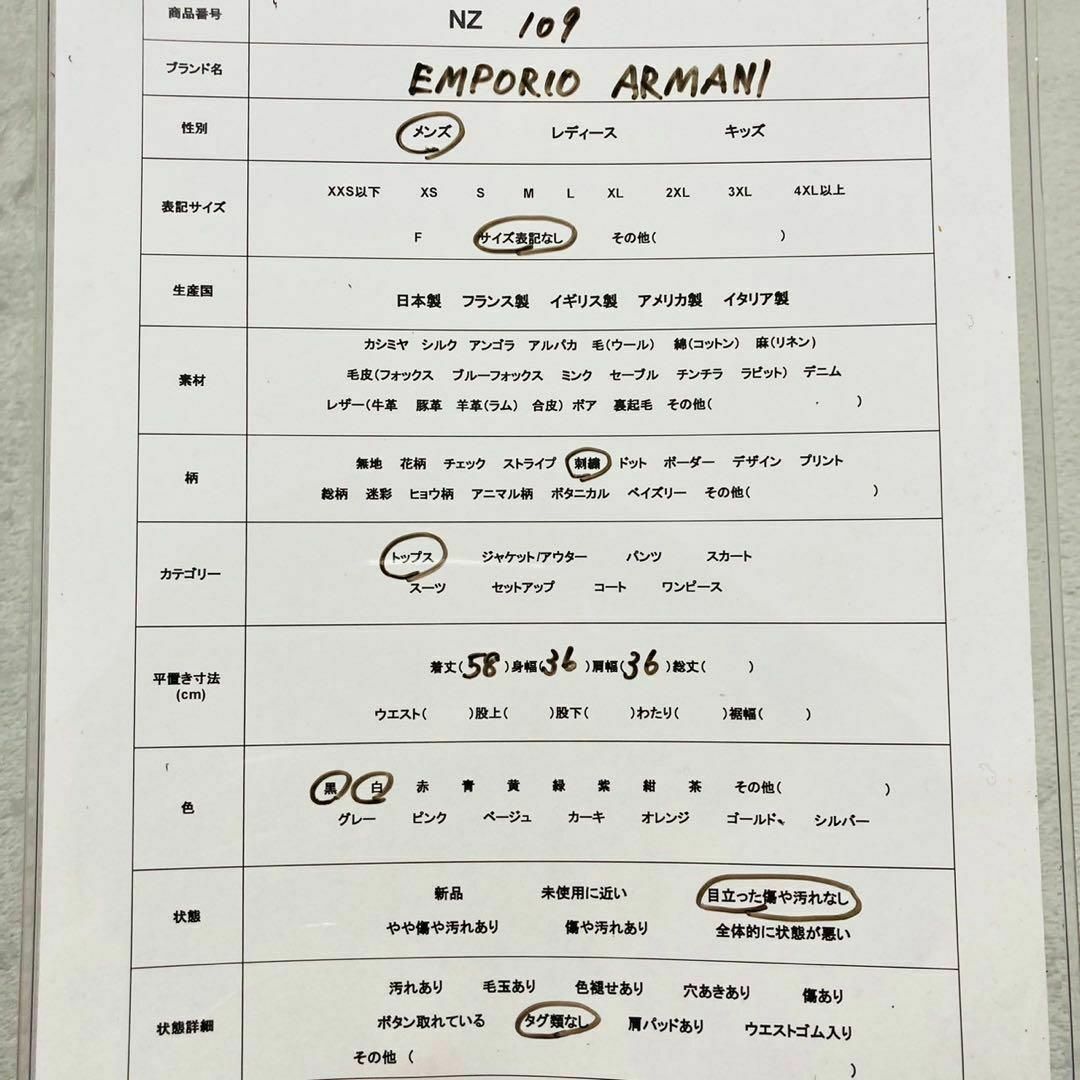 商品番号 NZ 109
ブランド名 EMPORIO ARMANI
性別 メンズ レディース キッズ
表記サイズ XXS以下 XS S M L XL 2XL 3XL 4XL以上
F サイズ表記なし その他( )
生産国 日本製 フランス製 イギリス製 アメリカ製 イタリア製
素材 カシミヤ シルク アンゴラ アルパカ 毛(ウール) 綿(コットン) 麻(リネン)
毛皮(フォックス ブルーフォックス ミンク セーブル チンチラ ラビット) デニム
レザー(牛革 豚革 羊革(ラム) 合皮) ボア 裏起毛 その他( )
柄 無地 花柄 チェック ストライプ 刺繍 ドット ボーダー デザイン プリント
総柄 迷彩 ヒョウ柄 アニマル柄 ボタニカル ペイズリー その他( )
カテゴリー トップス ジャケット/アウター パンツ スカート
スーツ セットアップ コート ワンピース
平置き寸法 着丈(58)身幅(36)肩幅(36)総丈( )
(cm)
ウエスト( )股上( )股下( )わたり( )裾幅( )
色 黒 白 赤 青 黄 緑 紫 紺 茶 その他( )
グレー ピンク ベージュ カーキ オレンジ ゴールド、 シルバー
状態 新品 未使用に近い 目立った傷や汚れなし
やや傷や汚れあり 傷や汚れあり 全体的に状態が悪い
状態詳細 汚れあり 毛玉あり 色褪せあり 穴あきあり 傷あり
ボタン取れている タグ類なし 肩パッドあり ウエストゴム入り
その他 ( )